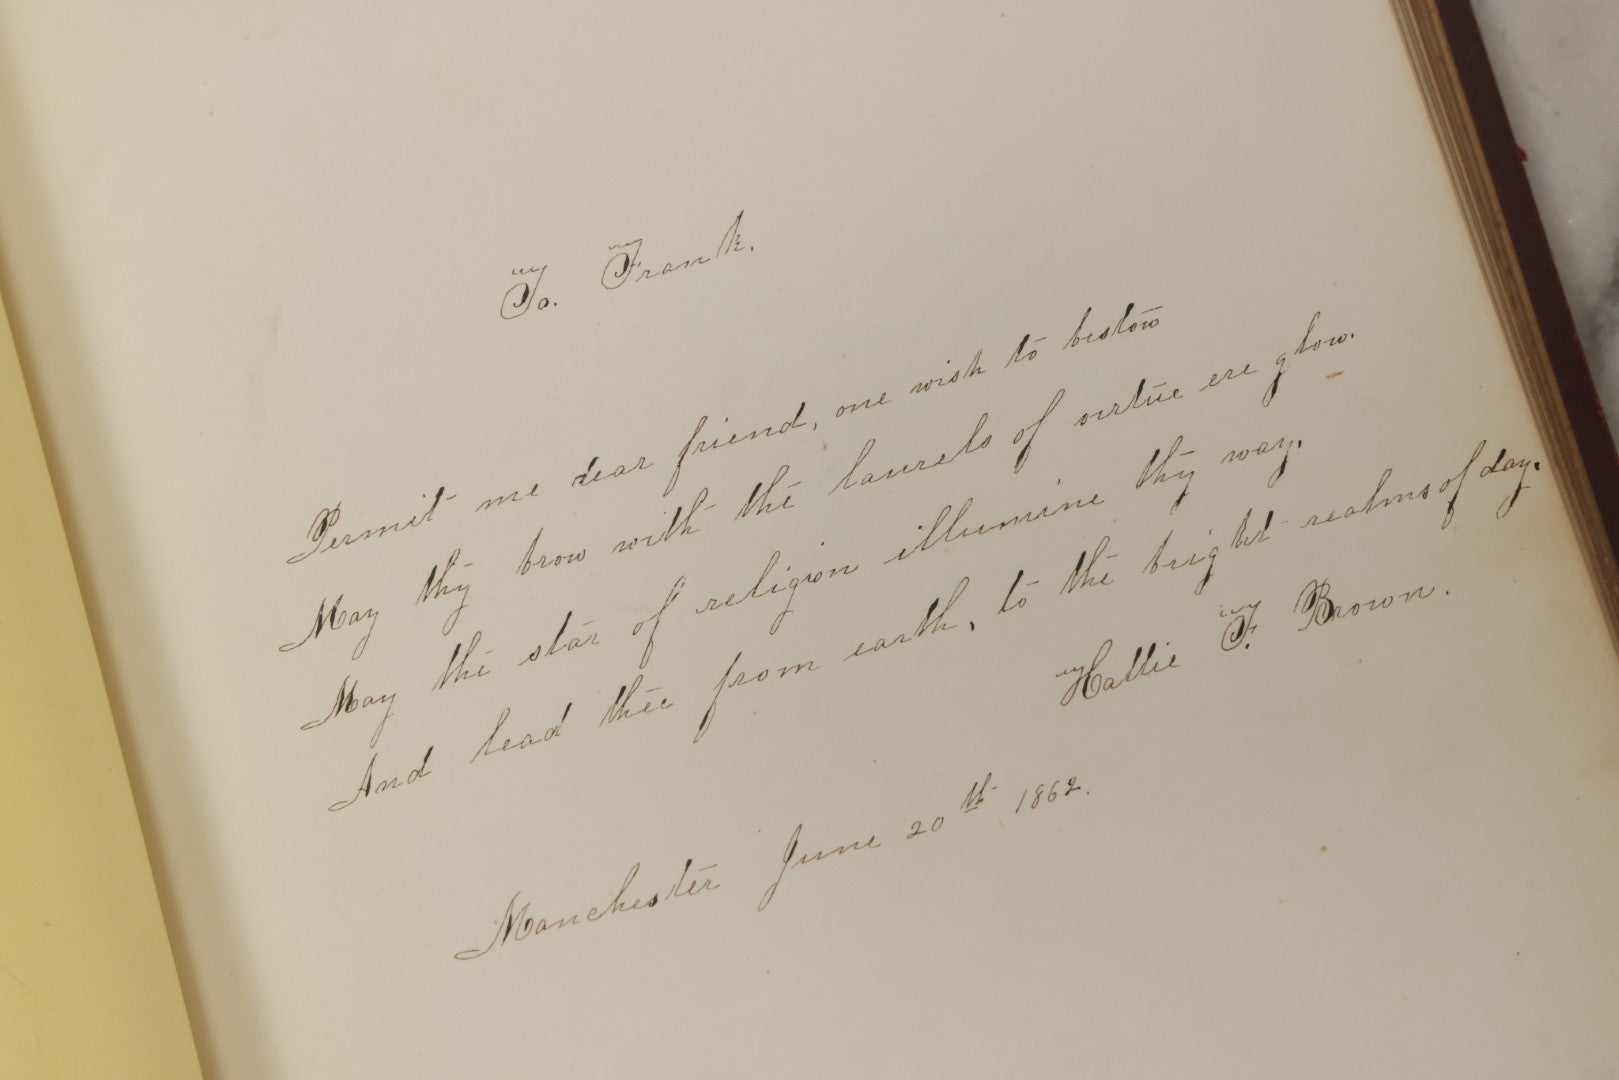 To. Frank.
Permit me dear friend, one wish to bestow
May thy brow with the laurels of virtue ere glow.
May the star of religion illumine thy way,
And lead thee from earth, to the bright realms of day.
Hattie F. Brown.
Manchester June 20th 1862.